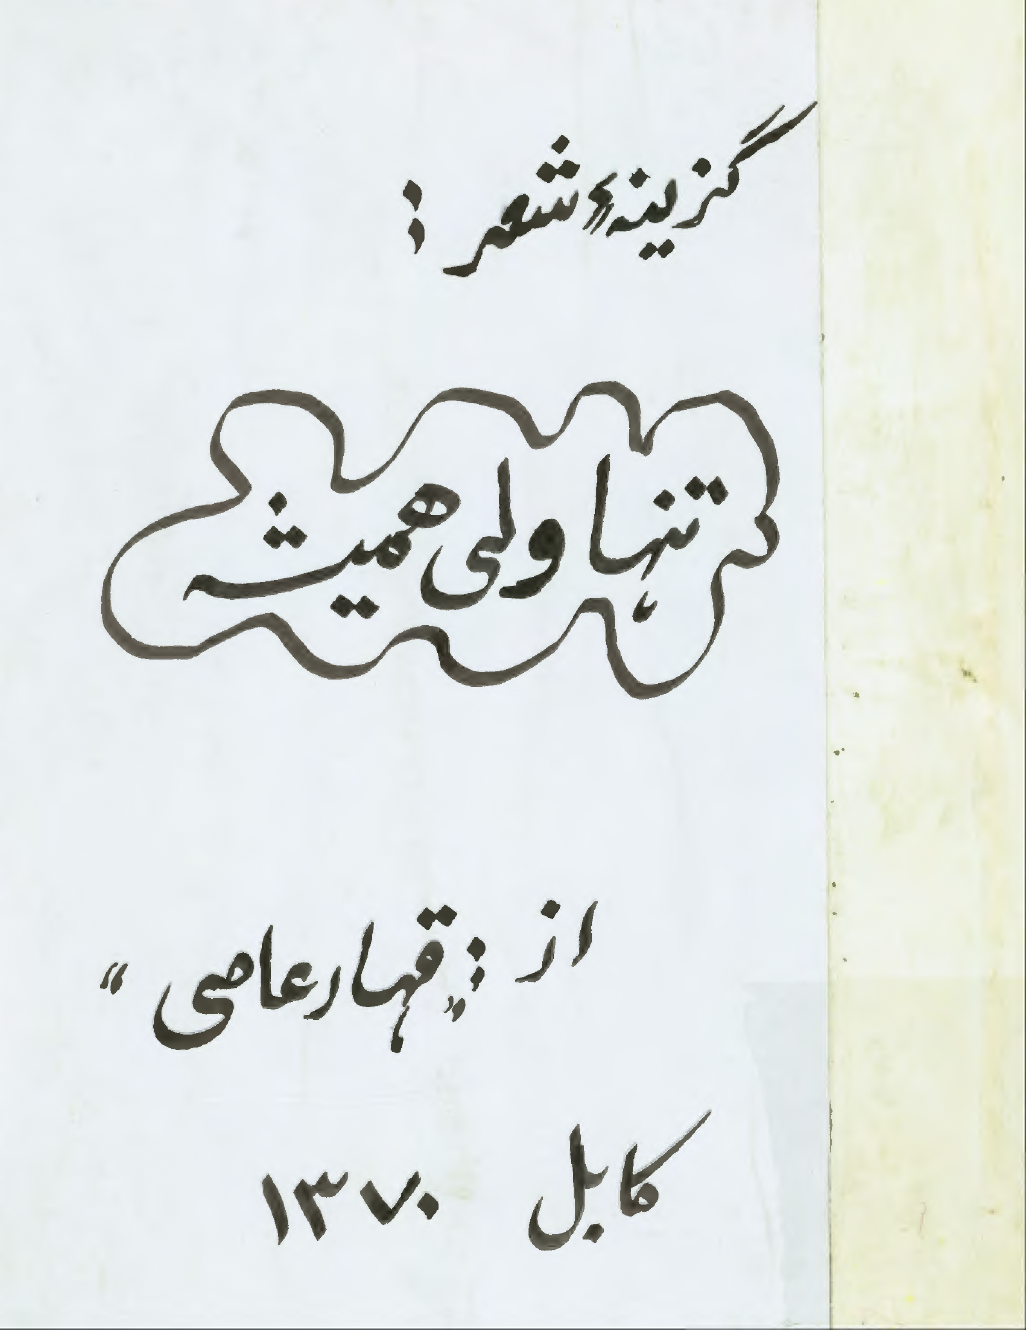 گزینهٔ شعر :
تنها ولی همیشه
از : «قهار عاصی»
کابل ۱۳۷۰